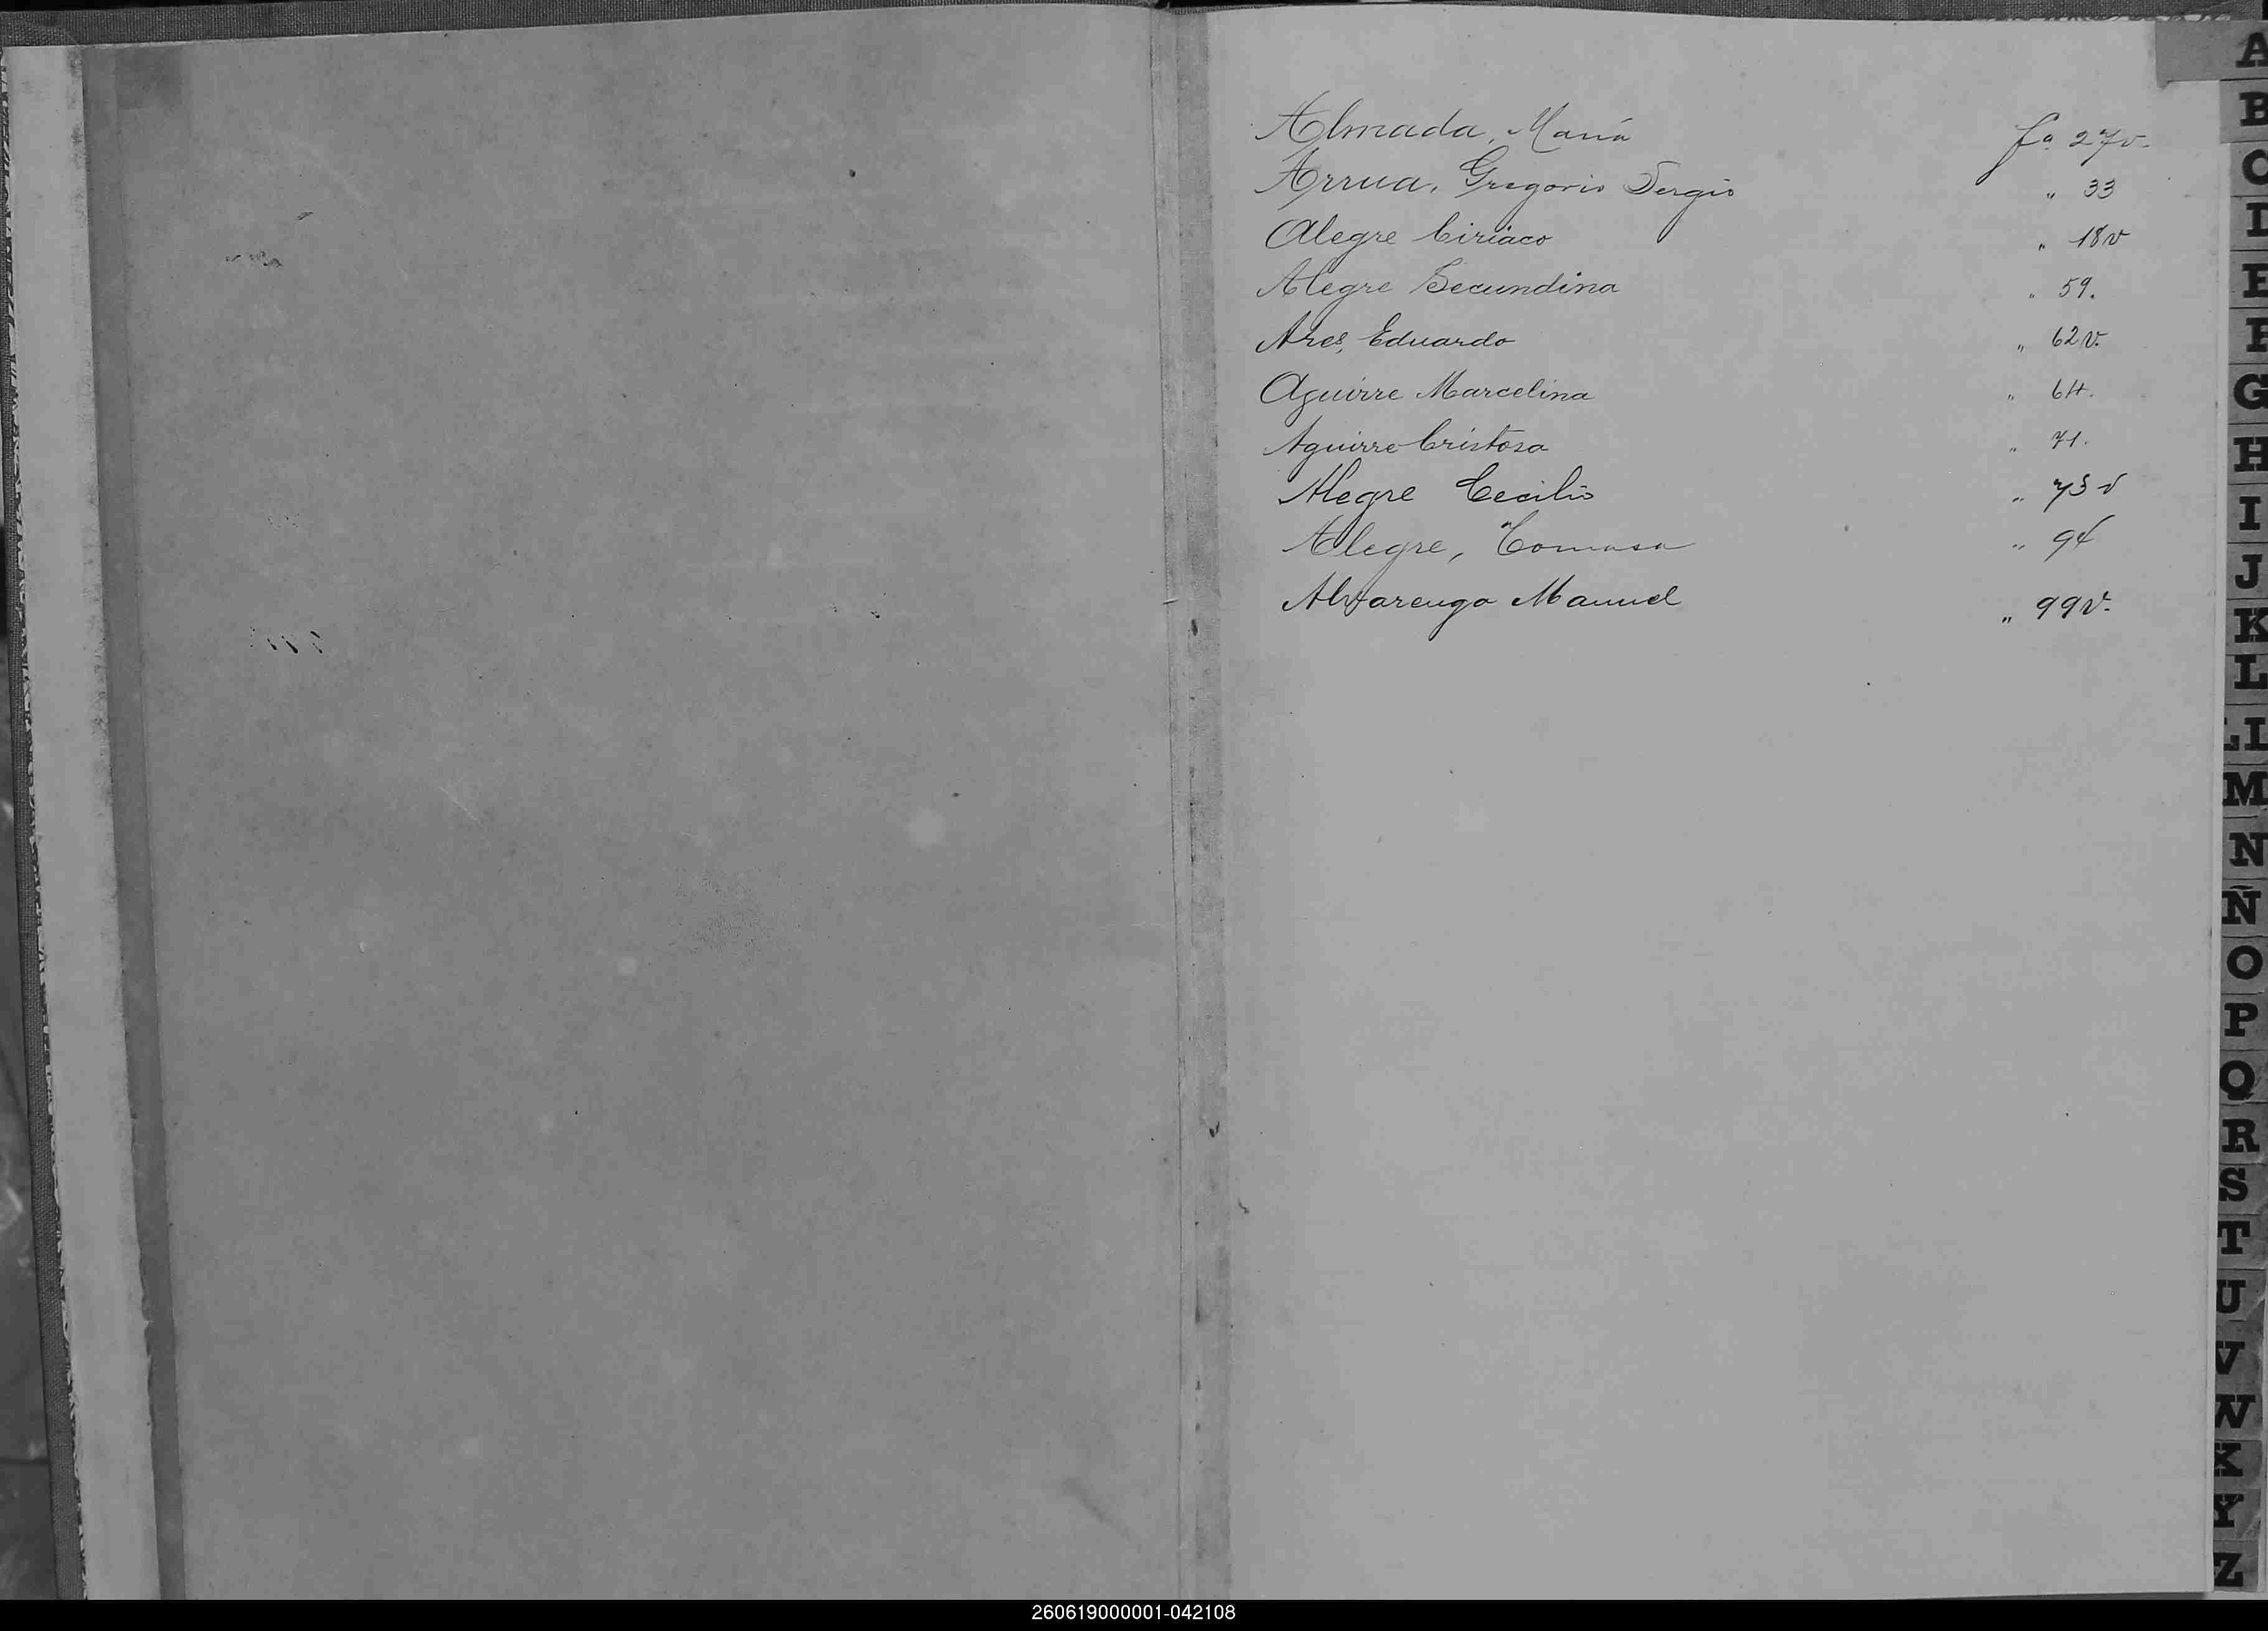 Almada, María fo 27v.
Arrua, Gregorio Sergio " 33
Alegre Ciriaco " 18v
Alegre Secundina " 59.
Ares, Eduardo " 62v.
Aguirre Marcelina " 64.
Aguirre Cristosa " 71.
Alegre Cecilio " 73v
Alegre, Tomasa " 94
Alvarenga Manuel " 99v.
A
B
C
D
E
F
G
H
I
J
K
L
LL
M
N
Ñ
O
P
Q
R
S
T
U
V
W
X
Y
Z
260619000001-042108